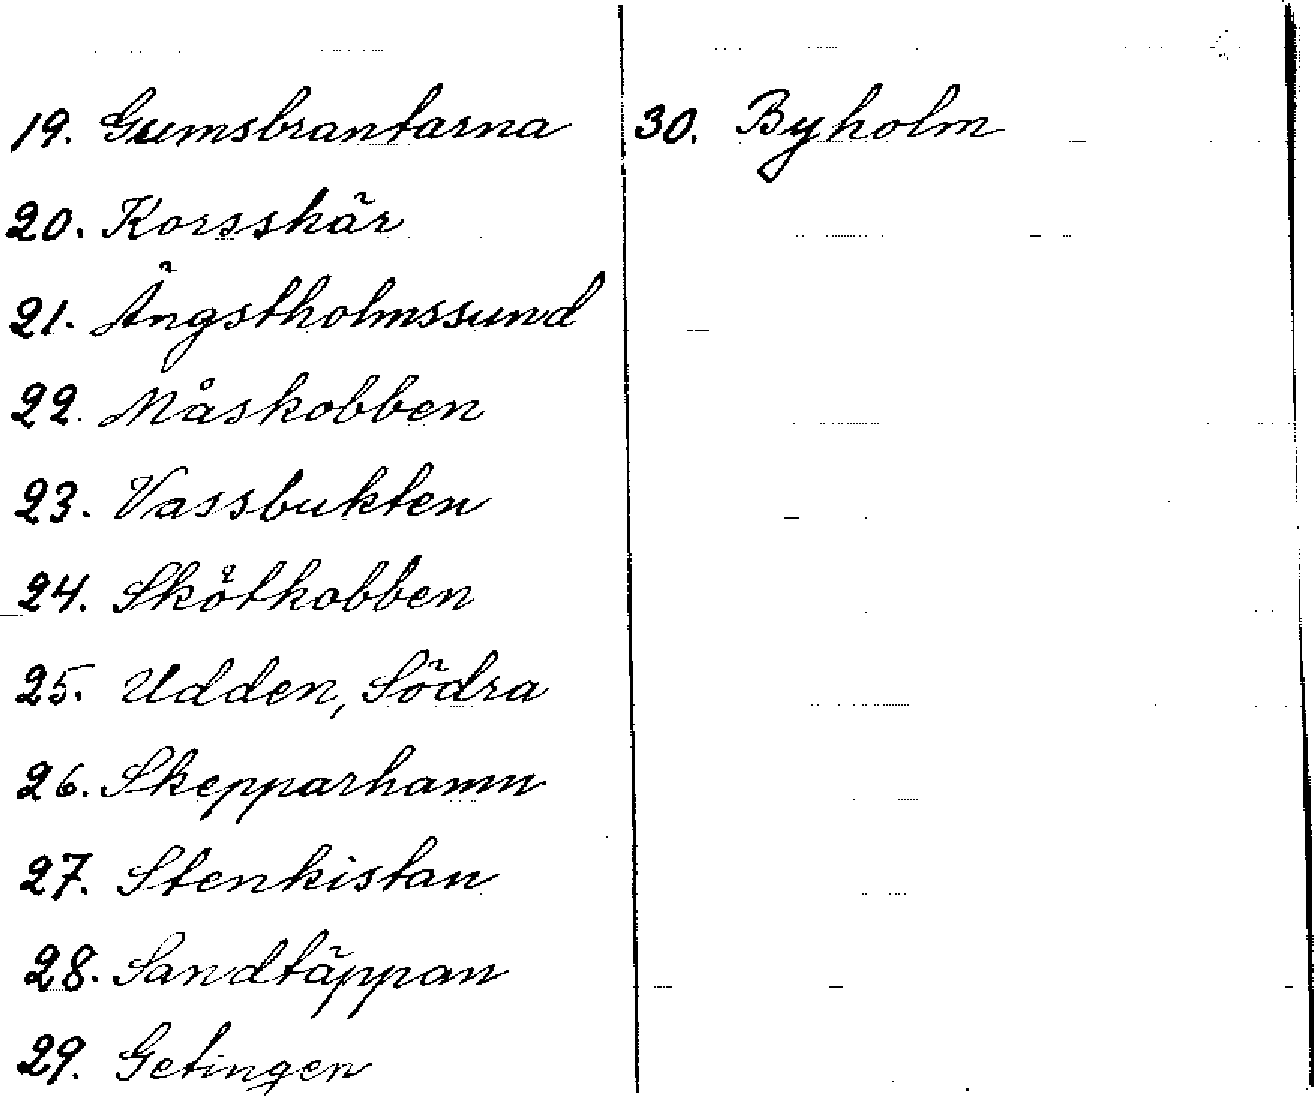 19. Gumsbrantarna
20. Korsskär
21. Ängsholmssund
22. Måskobben
23. Vassbukten
24. Skötkobben
25. Udden, Södra
26. Skepparhamn
27. Stenkistan
28. Sandtäppan
29. Getingen
30. Byholm